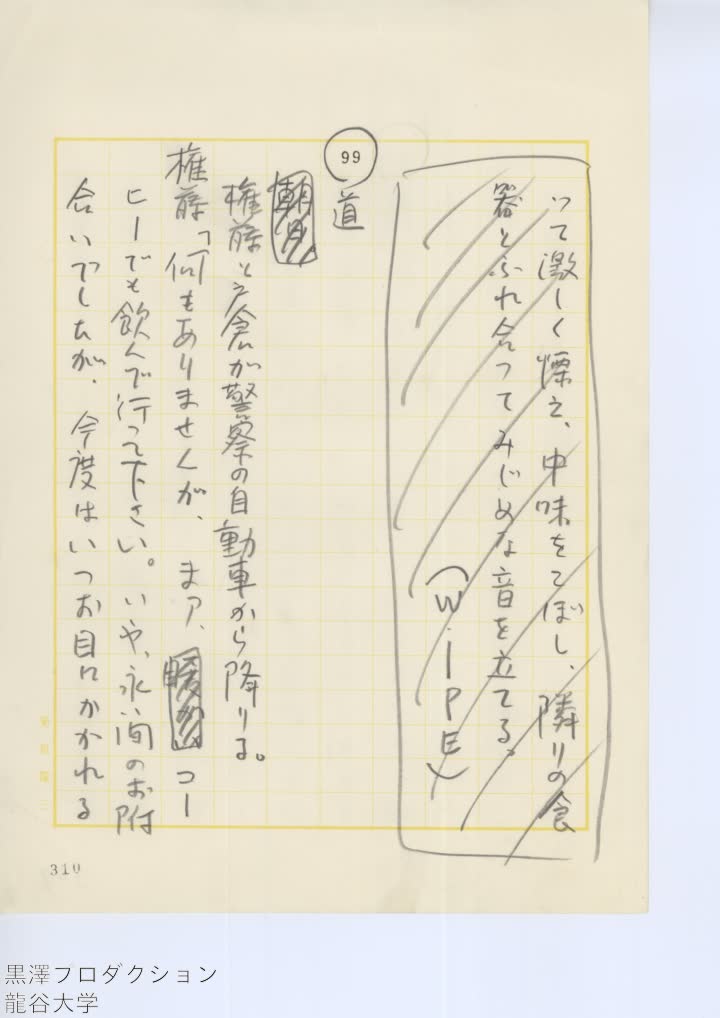 って激しく慄え、中味をこぼし、隣りの食
器とふれ合ってみじめな音を立てる。
(W・IPE)
99
道
権藤と戸倉が警察の自動車から降りる。
権藤「何もありませんが、まア、コー
ヒーでも飲んで行って下さい。いや、永い間のお附
合いでしたが、今度はいつお目にかかれる
310
黒澤プロダクション
龍谷大学